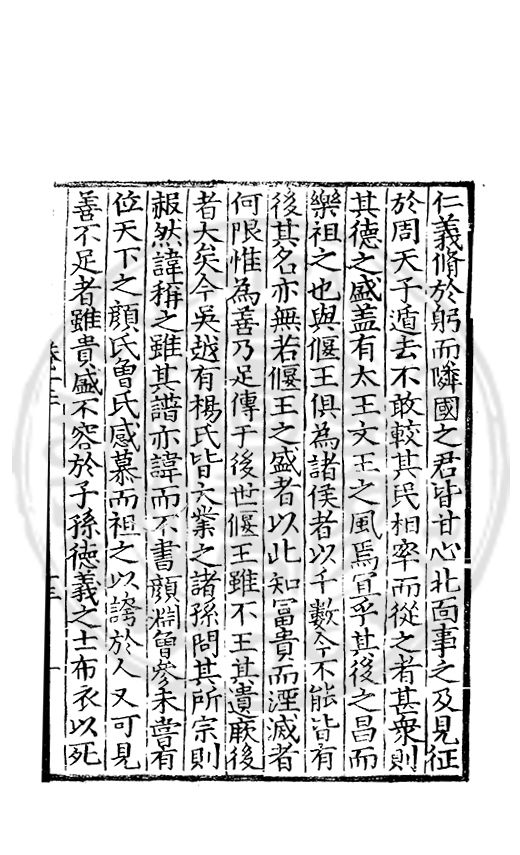 仁義脩於躬而隣國之君皆甘心北面事之及見征
於周天子遁去不敢較其民相率而從之者甚衆則
其德之盛盖有太王文王之風焉宜乎其後之昌而
樂祖之也與偃王俱為諸侯者以千數今不能皆有
後其名亦無若偃王之盛者以此知冨貴而湮滅者
何限惟為善乃足傳于後世偃王雖不王其遺厥後
者大矣今吳越有楊氏皆大業之諸孫問其所宗則
赧然諱稱之雖其譜亦諱而不書顔淵曾參未嘗有
位天下之顔氏曽氏感慕而祖之以誇於人又可見
善不足者雖貴盛不容於子孫德義之士布衣以死